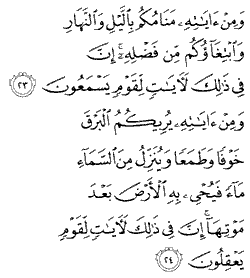 وَمِنْ ءَايَٰتِهِۦ مَنَامُكُم بِٱلَّيْلِ وَٱلنَّهَارِ
وَٱبْتِغَآؤُكُم مِّن فَضْلِهِۦٓ ۚ إِنَّ
فِى ذَٰلِكَ لَأٓيَٰتٍ لِّقَوْمٍ يَسْمَعُونَ ٢٣
وَمِنْ ءَايَٰتِهِۦ يُرِيكُمُ ٱلْبَرْقَ
خَوْفًا وَطَمَعًا وَيُنَزِّلُ مِنَ ٱلسَّمَآءِ
مَآءً فَيُحْىِۦ بِهِ ٱلْأَرْضَ بَعْدَ
مَوْتِهَآ ۚ إِنَّ فِى ذَٰلِكَ لَأٓيَٰتٍ لِّقَوْمٍ
يَعْقِلُونَ ٢٤